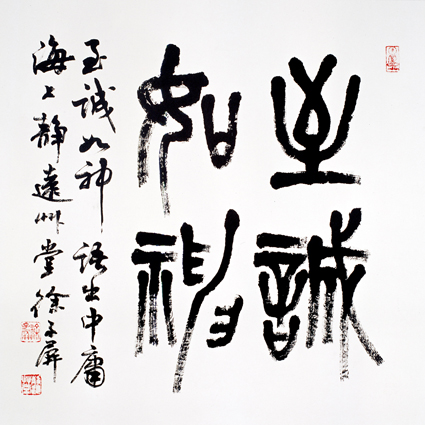 至誠
如神
至誠如神 語出中庸
海上靜遠艸堂徐子屏